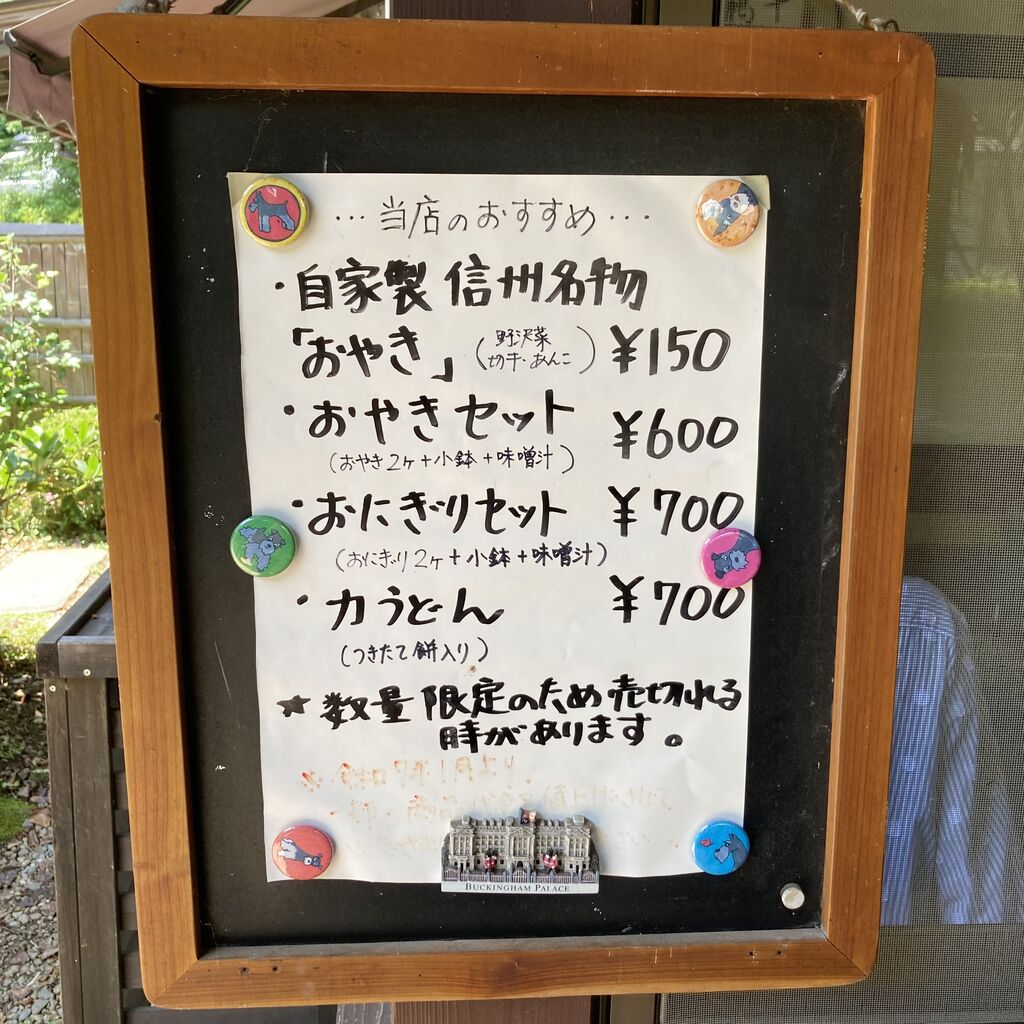 …当店のおすすめ…
・自家製 信州名物
「おやき」(野沢菜 ¥150
切干・あんこ)
・おやきセット ¥600
(おやき2ヶ+小鉢+味噌汁)
・おにぎりセット ¥700
(おにぎり2ヶ+小鉢+味噌汁)
・力うどん ¥700
(つきたて餅入り)
★数量限定のため売切れる
時があります。
※令和7年1月より、
値上げさせて
BUCKINGHAM PALACE